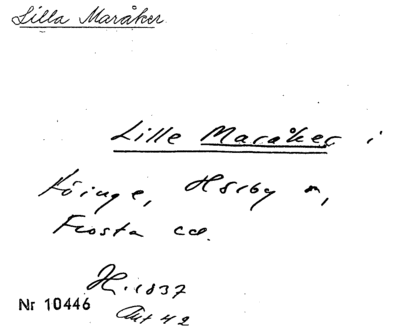 Lilla Maråker
Lille Maråker i
Köinge, Hörby sn,
Frosta hd.
H. 1837
Nr 10446
Akt 42